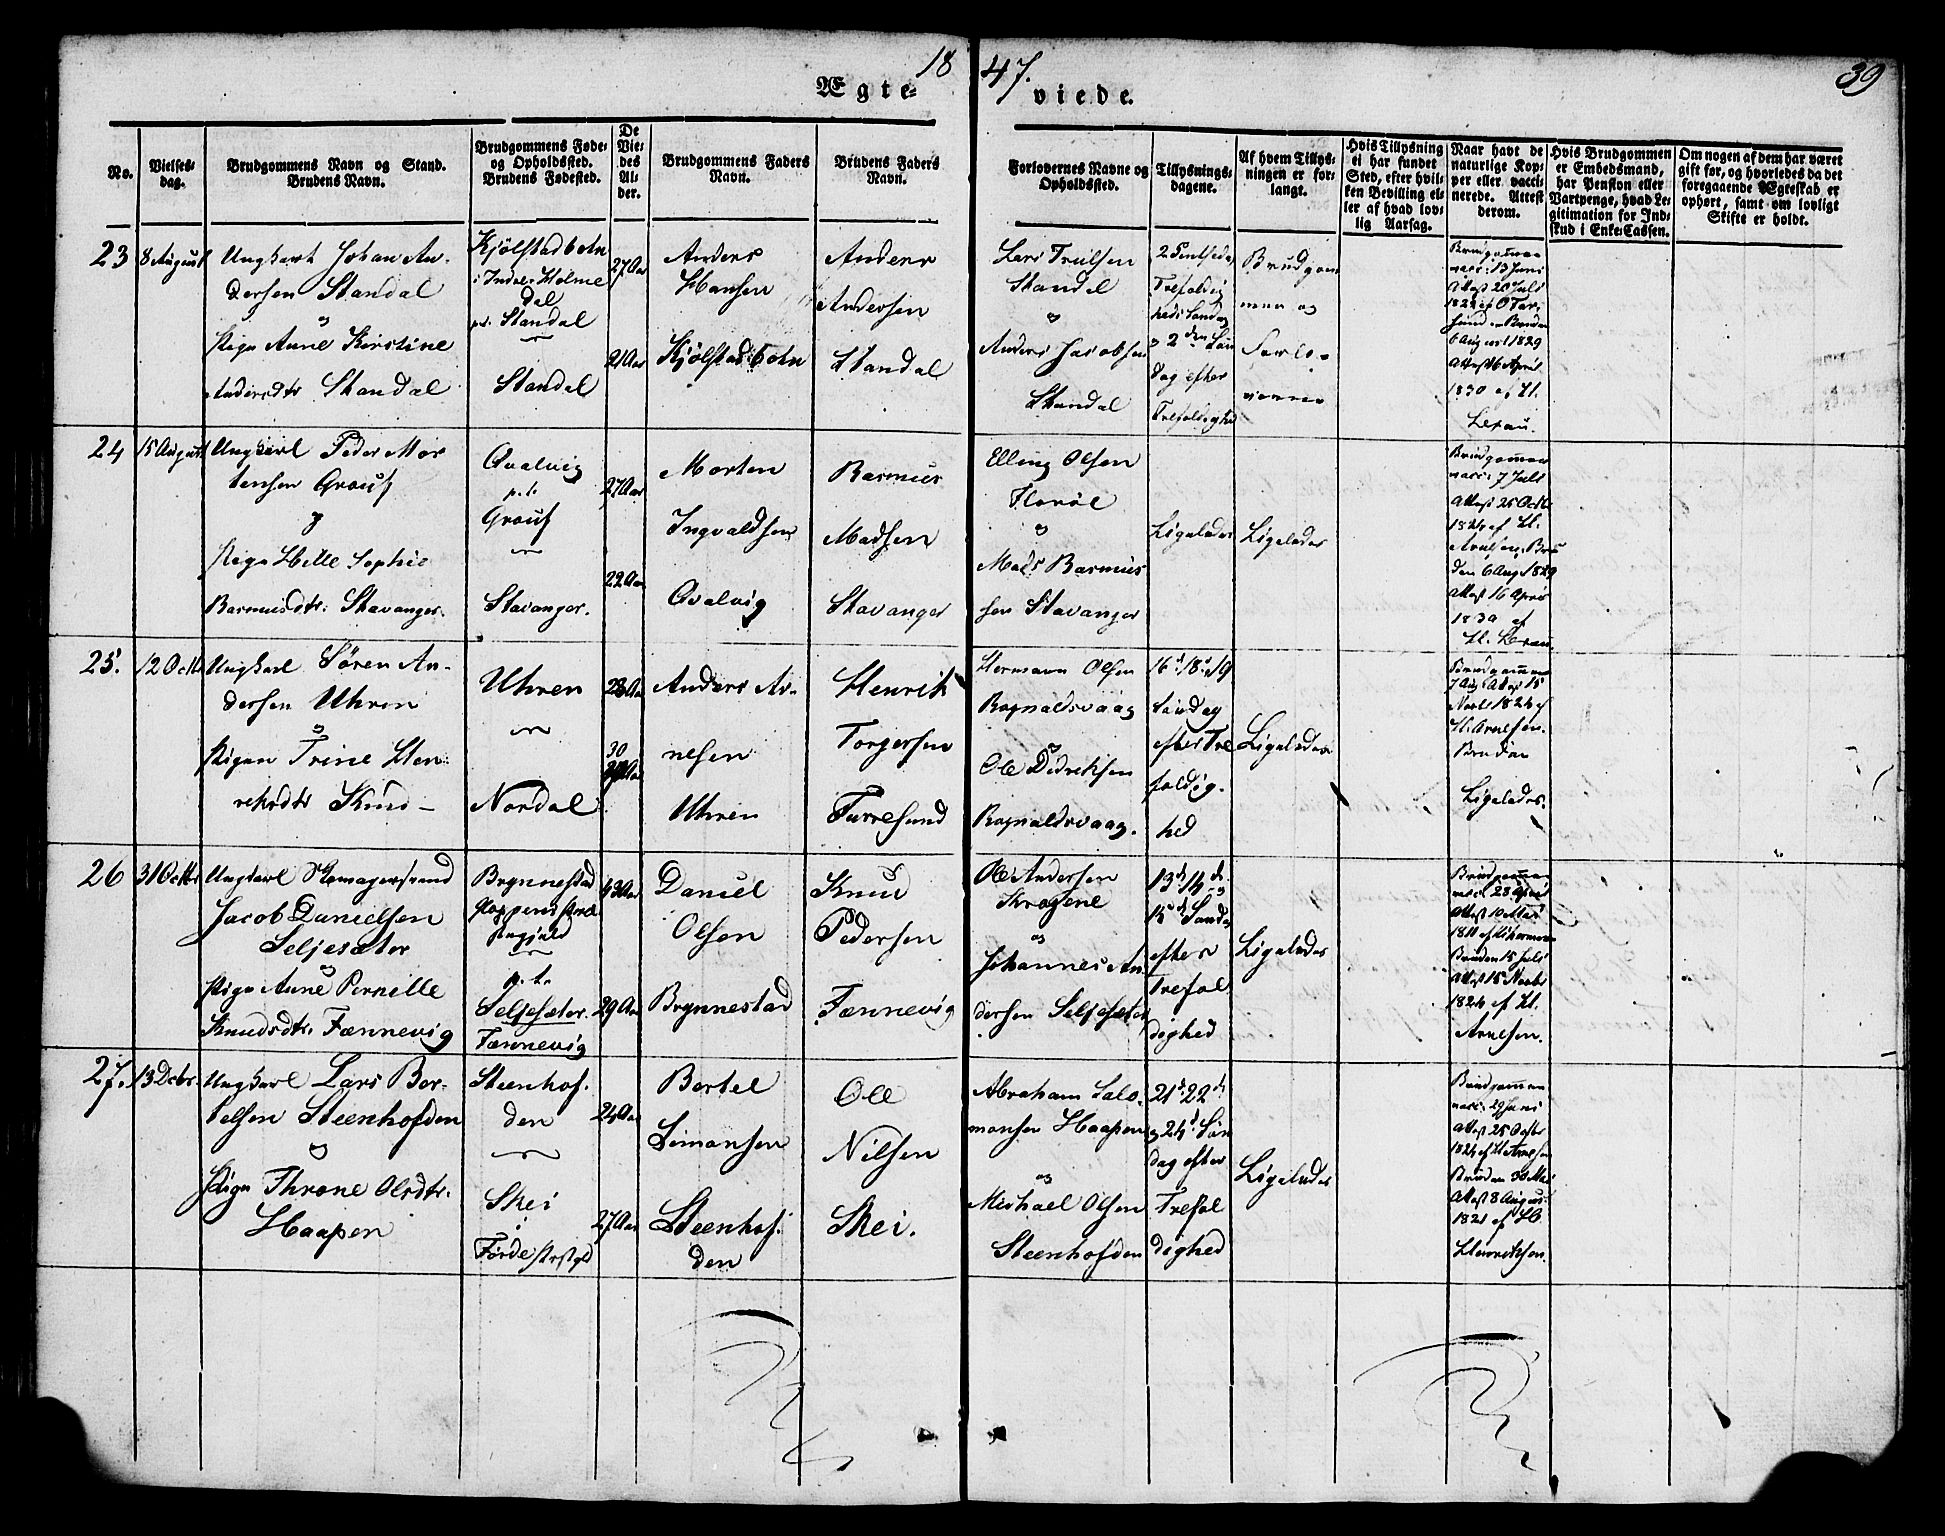 18 47. 39
Ægte- viede.
No.
Vielses-
dag.
Brudgommens Navn og Stand.
Brudens Navn.
Brudgommens Føde-
og Opholdssted.
Brudens Fødested.
De
Vie-
des
Al-
der.
Brudgommens Faders
Navn.
Brudens Faders
Navn.
Forlovernes Navne og
Opholdssted.
Tillysnings-
dagene.
Af hvem Tillys-
ningen er for-
langt.
Hvis Tillysning
ei har fundet
Sted, efter hvil-
ken Bevilling el-
ler af hvad lov-
lig Aarsag.
Naar havt de
naturlige Kop-
per eller vacci-
nerede. Attest
derom.
Hvis Brudgommen
er Embedsmand,
har Pension eller
Vartpenge, hvad Le-
gitimation for Ind-
skud i Enke-Cassen.
Om nogen af dem har været
gift før, og hvorledes da det
foregaaende Ægteskab er
ophørt, samt om lovligt
Skifte er holdt.
23
8 August
Ungkarl Johan An-
dersen Standal
og
Pige Anne Kirstine
Andersdtr Standal
Kjølstadbotn
i Indre Holme
dal
p.t. Standal
Standal
27 Aar
21 Aar
Anders
Hansen
Kjølstadbotn
Anders
Andersen
Standal
Lars Trulsen
Standal
og
Anders Jacobsen
Standal
2 Pintsedag
Trefoldig
heds Søndag
og 2den Søn
dag efter
Trefoldighed
Brudgom
men og
Forlo-
verne
Brudgommen
vacc: 13 Juni
Attest 20 Juli
1822 af
Bruden
6 August 1829
Attest 16 April
1830 af H.
Lexau.
24
15 August
Ungkarl Peder Mor
tensen Grouf
og
Pige Helle Sophie
Rasmusdtr. Stavanger.
Qvalvig
p.t.
Grouf
Stavanger.
27 Aar
22 Aar
Morten
Ingvaldsen
Qvalvig
Rasmus
Madsen
Stavanger
Elling Olsen
Florøe
og
Mads Rasmus
sen Stavanger
Ligeledes
Ligeledes
Brudgommen
vacc: 7 Juli
Attest 25 Octbr
1824 af H.
Arnesen. Bru
den 6 Aug 1829
Attest 16 April
1830 af
H. Lexau.
25.
12 Octbr
Ungkarl Søren An-
dersen Uhren
og
Pigen Trine Hen-
riksdtr Knud-
Uhren
Nordal
28 Aar
30
Anders Ar-
nesen
Uhren
Henrik
Torgersen
Furresund
Hermann Olsen
Rognaldsvaag
og
Ole Didriksen
Rognaldsvaag.
16d 18d 19
Søndag
efter Tre
foldig-
hed
Ligeledes
Brudgommen
7 Aug Attest 15
Novbr 1824 af
H. Arnesen.
Bruden
Ligeledes.
26
31 Octbr
Ungkarl
Jacob Danielsen
Seljesæter
og
Pige Anne Pernille
Knudsdtr. Fænnevig
Brynnestad
Gloppens Præ
stegjeld
p.t.
Seljesæter.
Fænnevig
43 Aar
29 Aar
Daniel
Olsen
Brynnestad
Knud
Pedersen
Fænnevig
Ole Andersen
Krogene
og
Johannes An
dersen Seljesæter
13d 14d og
15d Søndag
efter
Trefol
dighed
Ligeledes
Brudgommen
vacc: 28 April
Attest 10 Mai
Bruden 15 Juli
Attest 15 Novbr
1824 af H.
Arnesen.
27.
13 Decbr.
Ungkarl Lars Ber-
telsen Steenhofden
og
Pige Throne Olsdtr.
Haapen
Steenhof-
den
Skei
i
Førde Præstgld
24 Aar
27 Aar
Bertel
Simonsen
Steenhof-
den
Ole
Nilsen
Skei.
Abraham Salo-
monsen Haapen
og
Michael Olsen
Steenhofden
21d 22d
og 24d Søn
dag efter
Trefol
dighed
Ligeledes
Brudgommen
vacc: 29 Juni
Attest 25 Octbr
1824 af H Arnesen
Bruden 30 Mai
Attest 8 August
1821 af
Henriksen.